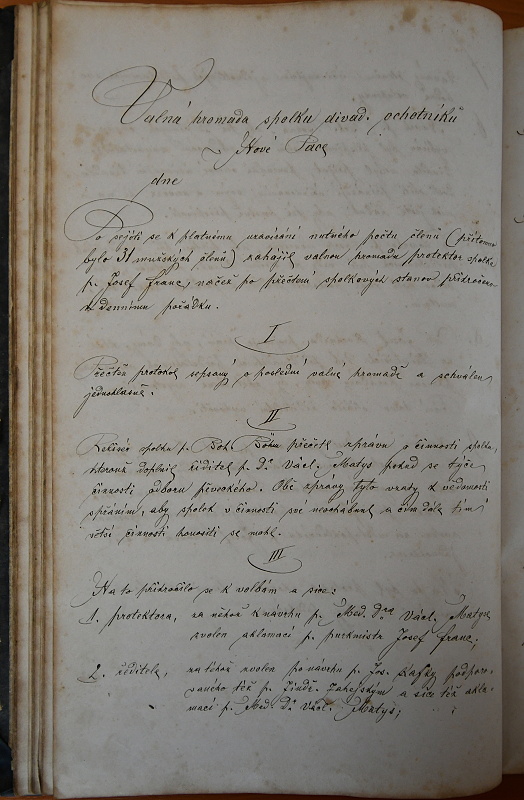 Valná hromada spolku divad. ochotníků
v Nové Pace
dne
Po sejití se k platnému uzavírání nutného počtu členů (přítomno
bylo 31 mužských členů) zahájil valnou hromadu protektor spolku
p. Josef Franc, načež po přečtení spolkových stanov přikročeno
k dennímu pořádku.
I
Přečten protokol sepsaný o poslední valné hromadě a schválen
jednohlasně.
II
Režisér spolku p. Boh. Böhm přečetl zprávu o činnosti spolku,
kterouž doplnil ředitel p. Dr. Václ. Matys pokud se týče
činnosti odboru pěveckého. Obě zprávy tyto vzaty k vědomosti
s přáním, aby spolek v činnosti své neochabnul a čím dále tím
větší činností honositi se mohl.
III
Na to přikročilo se k volbám a sice:
1. protektora, za něhož k návrhu p. Med. Dra. Václ. Matyse
zvolen aklamací p. purkmistr Josef Franc;
2. ředitele, za téhož zvolen po návrhu p. Jos. Kafky podporo-
vaného též p. Jindř. a sice též akla-
mací p. Med. Dr. Václ. Matys;